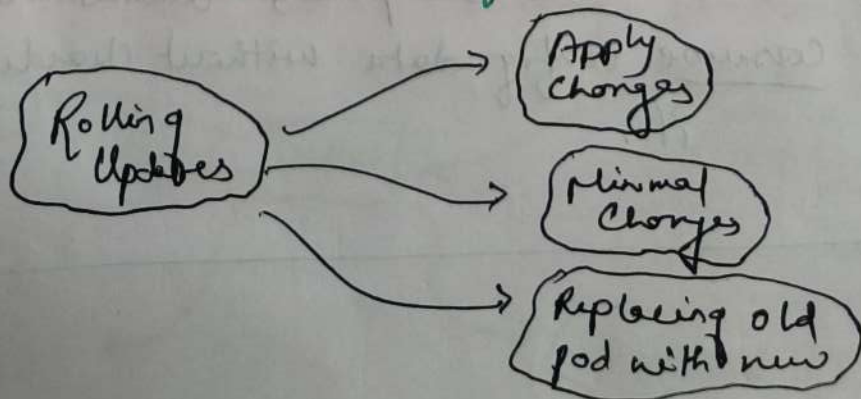 Rolling
Updates
Apply
Changes
Minimal
Changes
Replacing old
pod with new